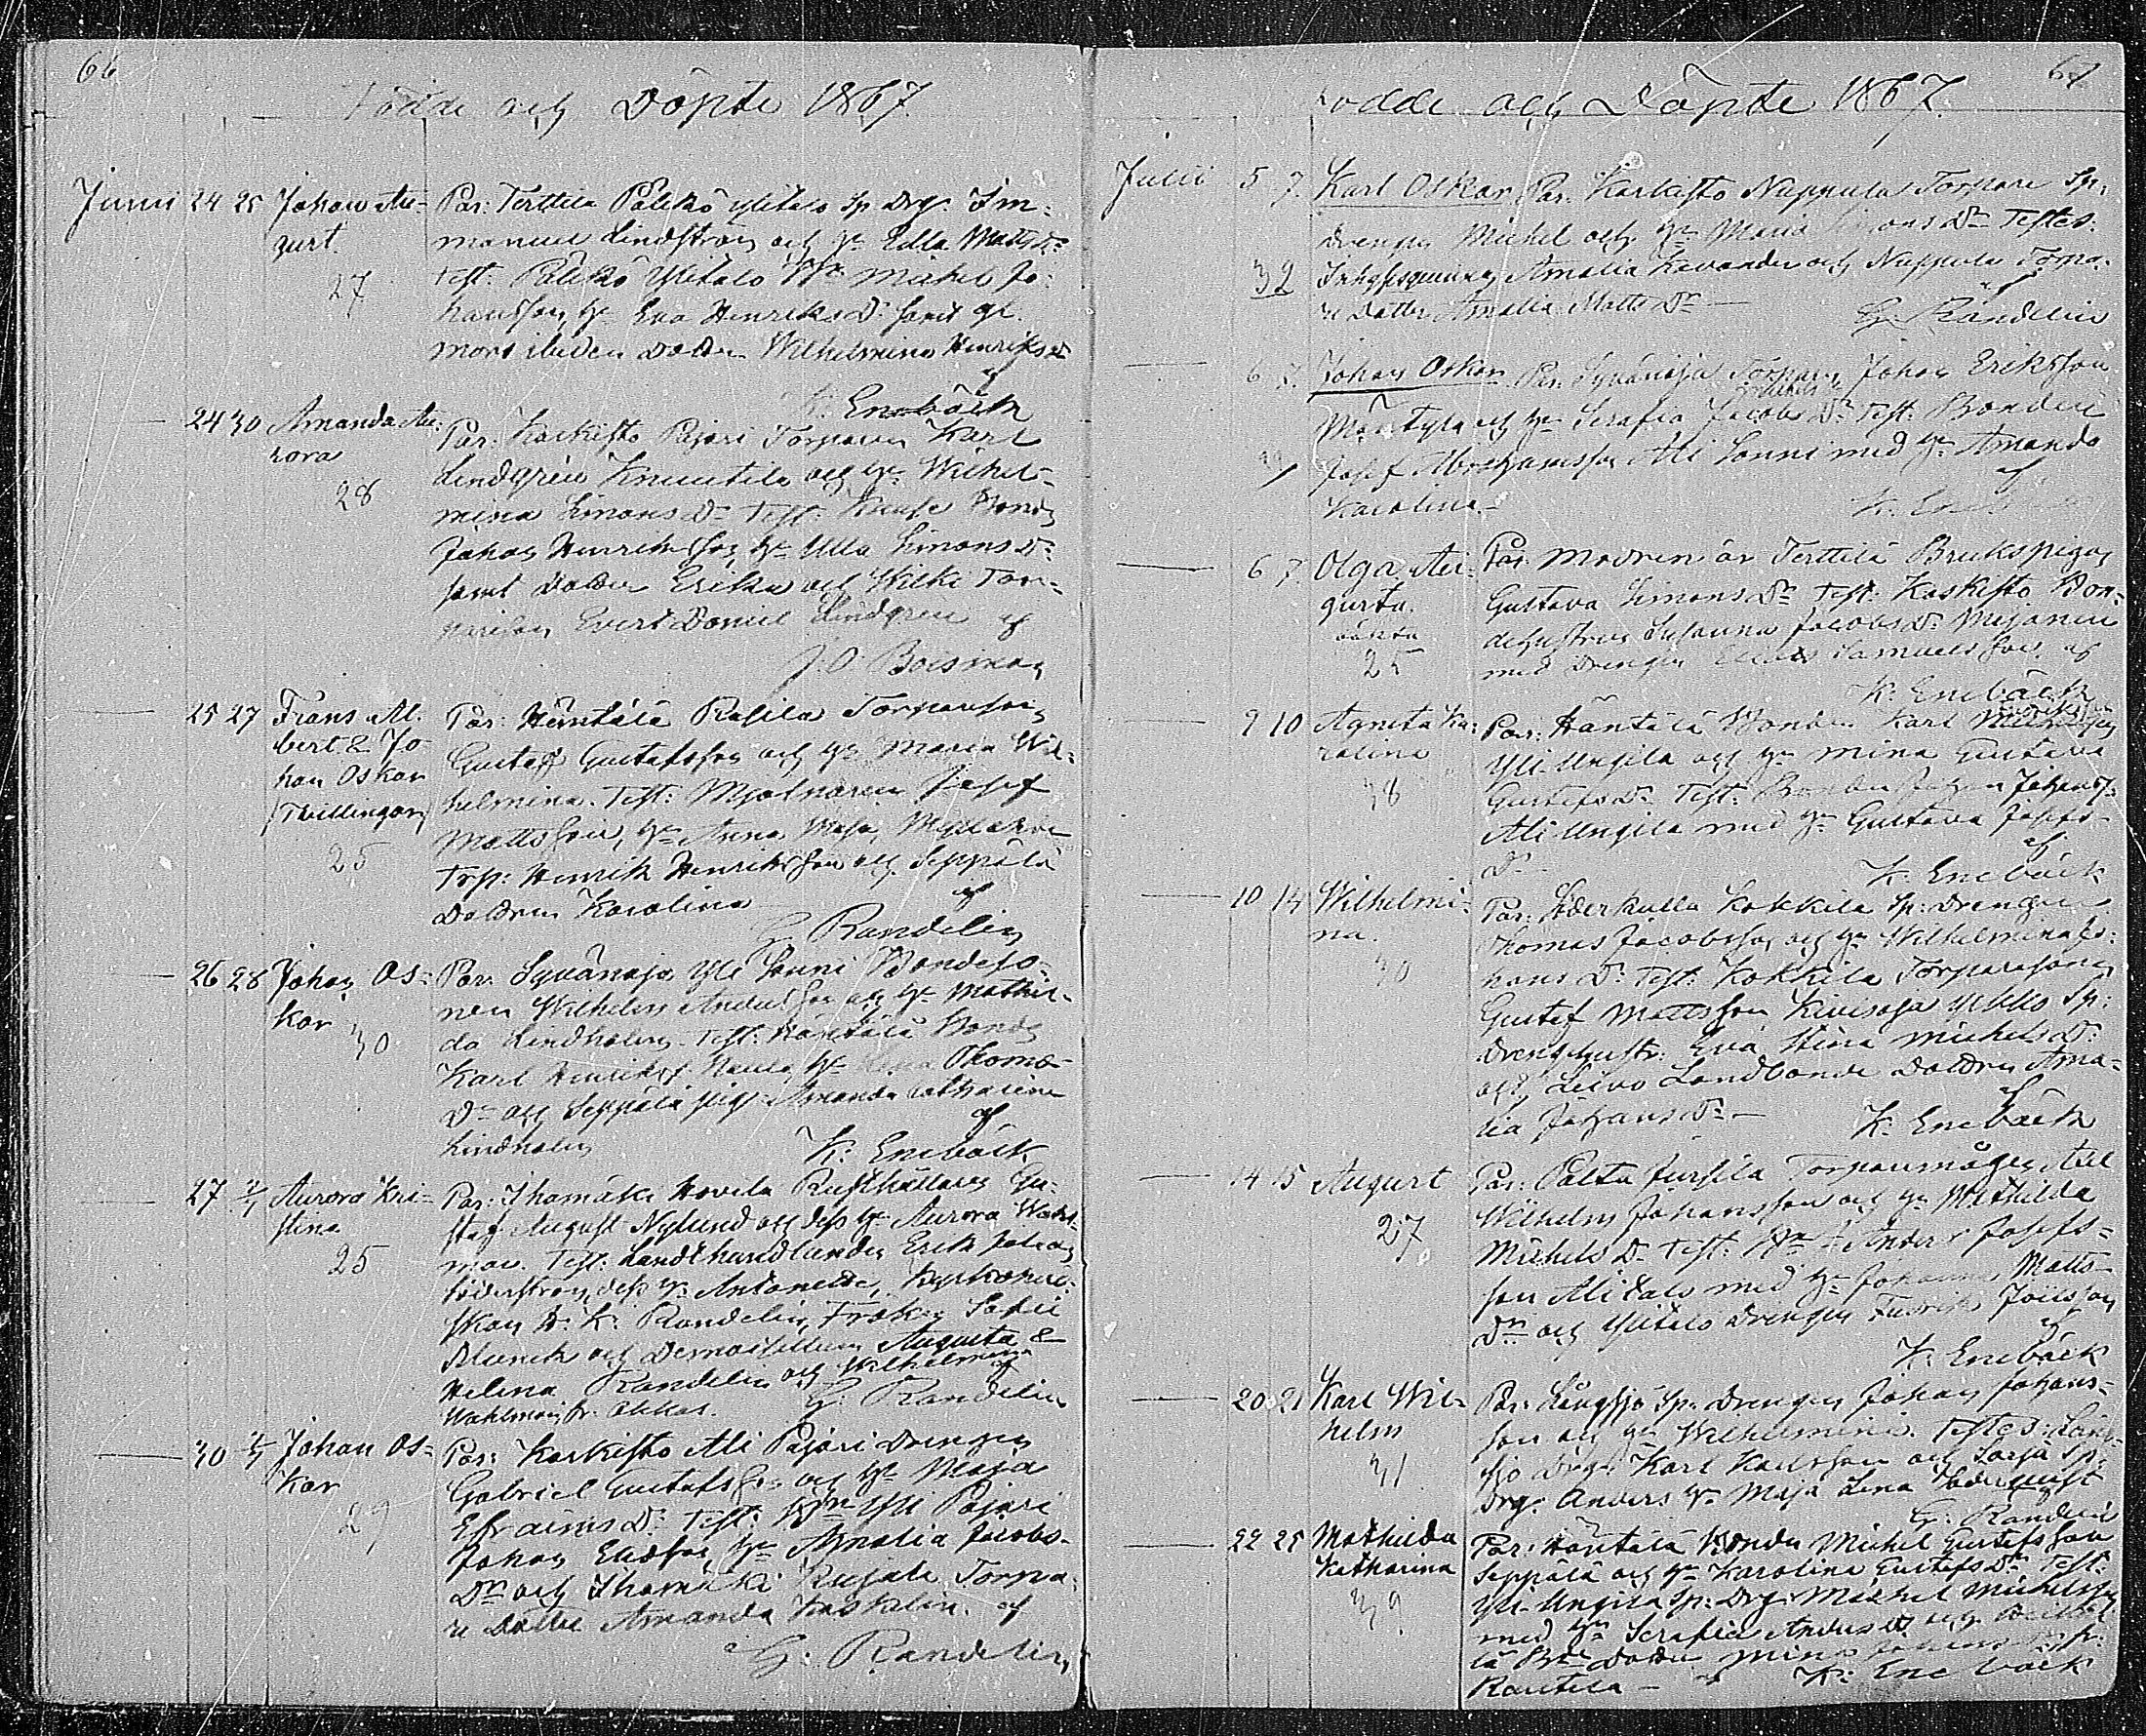 66
Födde och Döpte 1867.
Junii 24 25 Johan Au-
gust.
27
Par: Terttilä Pälikö Ylitalo Sp Drg. Im-
manuel Lindström och Hu Ulla Matts Dr
Test: Pälikö Ylitalo Michel Jo-
hansson, Hu Eva Henriks Dr samt
Dottren Wilhelmina Henriks Dr
af
K: Enebäck
24 30 Amanda Au-
rora
28
Par: Karkisto Pajari Torparen Karl
Lindgrén Knuutila och Hu Wilhel-
mina Simons Dr Test: Bonden
Johan Henriksson, Hu Ulla Simons Dr
samt Dottren Erika och Tor-
Evert Daniel Lindgrén af
J. O. Boisman
25 27 Frans Al-
bert & Jo-
han Oskar
(Tvillingar)
25
Par: Häntälä Rasila Torparsonen
Gustaf Gustafsson och Hu Maria Wil-
helmina. Test: Mjölnaren Josef
Mattsson, Hu Anna Maja,
Trp: Henrik Henriksson och Seppälä
Dottren Karolina
af
G. Randelin
26 28 Johan Os-
kar
30
Par: Syvänoja Yli Sonni Bondeso-
nen Wilhelm Andersson och Hu Mathil-
da Lindholm. Test: Häntälä Bonden
Karl Henriksson Hu Thomæ
Dr och Seppälä pig. Amanda Catharina
Lindholm
af
K: Enebäck
27 2/7 Aurora Kri-
stina
25
Par: Ihamäki Hovila Rusthållaren Gu-
staf August Nylund och dess Hu Aurora Wahl-
man. Test: Landthandlanden Erik Johan
Söderström, dess Hu Antonette, Kyrkoher-
skan H. K. Randelin, Fröken Sofie
Blanck och Demoisellerna Augusta &
Helena Randelin och Wilhelmina
Wahlman fr. Akkas.
af
G. Randelin
30 2/7 Johan Os-
kar
29
Par: Karkisto Ali Pajari Drengen
Gabriel Gustafsson och Hu Maja
Efraims Dr Test: Yli Pajari
Johan Eliasson, Hu Amalia Jacobs-
Dr och Ihamäki Kujala Torpa-
re Dotter Amanda Kaskelin. af
G: Randelin
67
Födde och Döpte 1867.
Julii 5 7. Karl Oskar
32
Par. Karkisto Nuppula Torpare Sp.
Drengen Michel och Hu Maria Simons Dr Testes:
Inhyseqvinnan Amalia Kavander och Nuppula Torpa-
re Dotter Amalia Matts Dr
af
G. Randelin
6 7. Johan Oskar
Par. Syvänoja Torparen Johan Eriksson
Mäntylä och Hu Serafia Jacobs Dr Test: Bonden
Josef Abrahamsson Ali Sonni med Hu Amanda
Karolina.
af
K. Enebäck
6 7. Olga Au-
gusta.
oäkta
25
Par. Modren är Terttilä Brukspigan
Gustava Simons Dr Test: Kaskisto Bon-
dehustrun Susanna Jacobs Dr Mejanen
med Drengen Elias Samuelsson af
K. Enebäck
9 10 Agneta Ka-
rolina
38
Par: Häntälä Bonden Karl
Yli-Ungila och Hu Mina Gustava
Gustafs Dr Test: Bonden Johan Johanss.
Ali-Ungila med Hu Gustava Josefs-
Dr
af
K: Enebäck
10 14 Wilhelmi-
na.
30
Par: Söderkulla Kokkila Sp: Drengen
Thomas Jacobsson och Hu Wilhelmina Jo-
hans Dr Test: Kokkila Torparesonen
Gustaf Mattsson Kivisoja Ylitalo Sp:
Dreng hustr: Eva Stina Michels Dr
och Leivo Landbonde Dottren Ama-
lia Johans Dr
af
K: Enebäck
14 15 August
27
Par: Palta Jussila Torparemågen Axel
Wilhelm Johansson och Hu Mathilda
Michels Dr Test: Anders Josefs-
son Alitalo med Hu Johanna Matts-
Dr och Ylitalo Drengen Fredrik Joelsson
af
K: Enebäck
20 21 Karl Wil-
helm
31
Par: Långsjö Sp: Drengen Johan Johans-
son och Hu Wilhelmina. Testes: Lång-
sjö Drg: Karl Karlsson och Sarja Sp:
Drg: Anders Hu Maja Lena Söderqvist
G: Randelin
22 25 Mathilda
Katharina
39
Par: Häntälä Bonden Michel Gustafsson
Seppälä och Hu Karolina Gustafs Dr Test:
Yli-Ungila Sp: Drg: Michel Michelsson
med Hu Serafia Anders Dr och
Dotter Mina Johans Dr fr:
Rantila af K: Enebäck